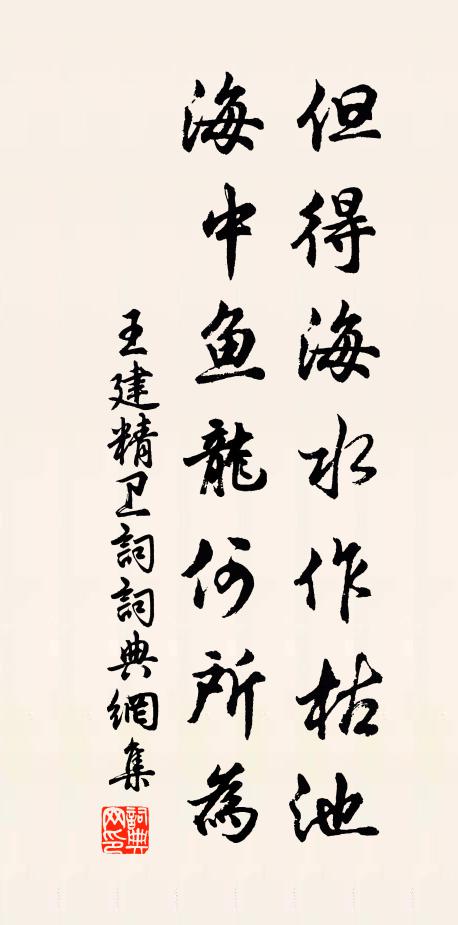 但得海水作枯池
海中鱼龍何所為
王建精卫詞詞典網集
詞典网印